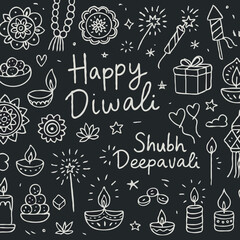 Happy
Diwali
Shubh
Deepavali